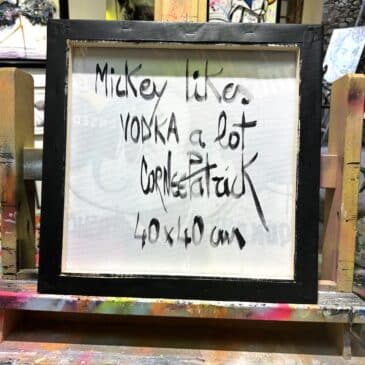 Mickey likes
VODKA a lot
CORNéePatrick
40x40 cm